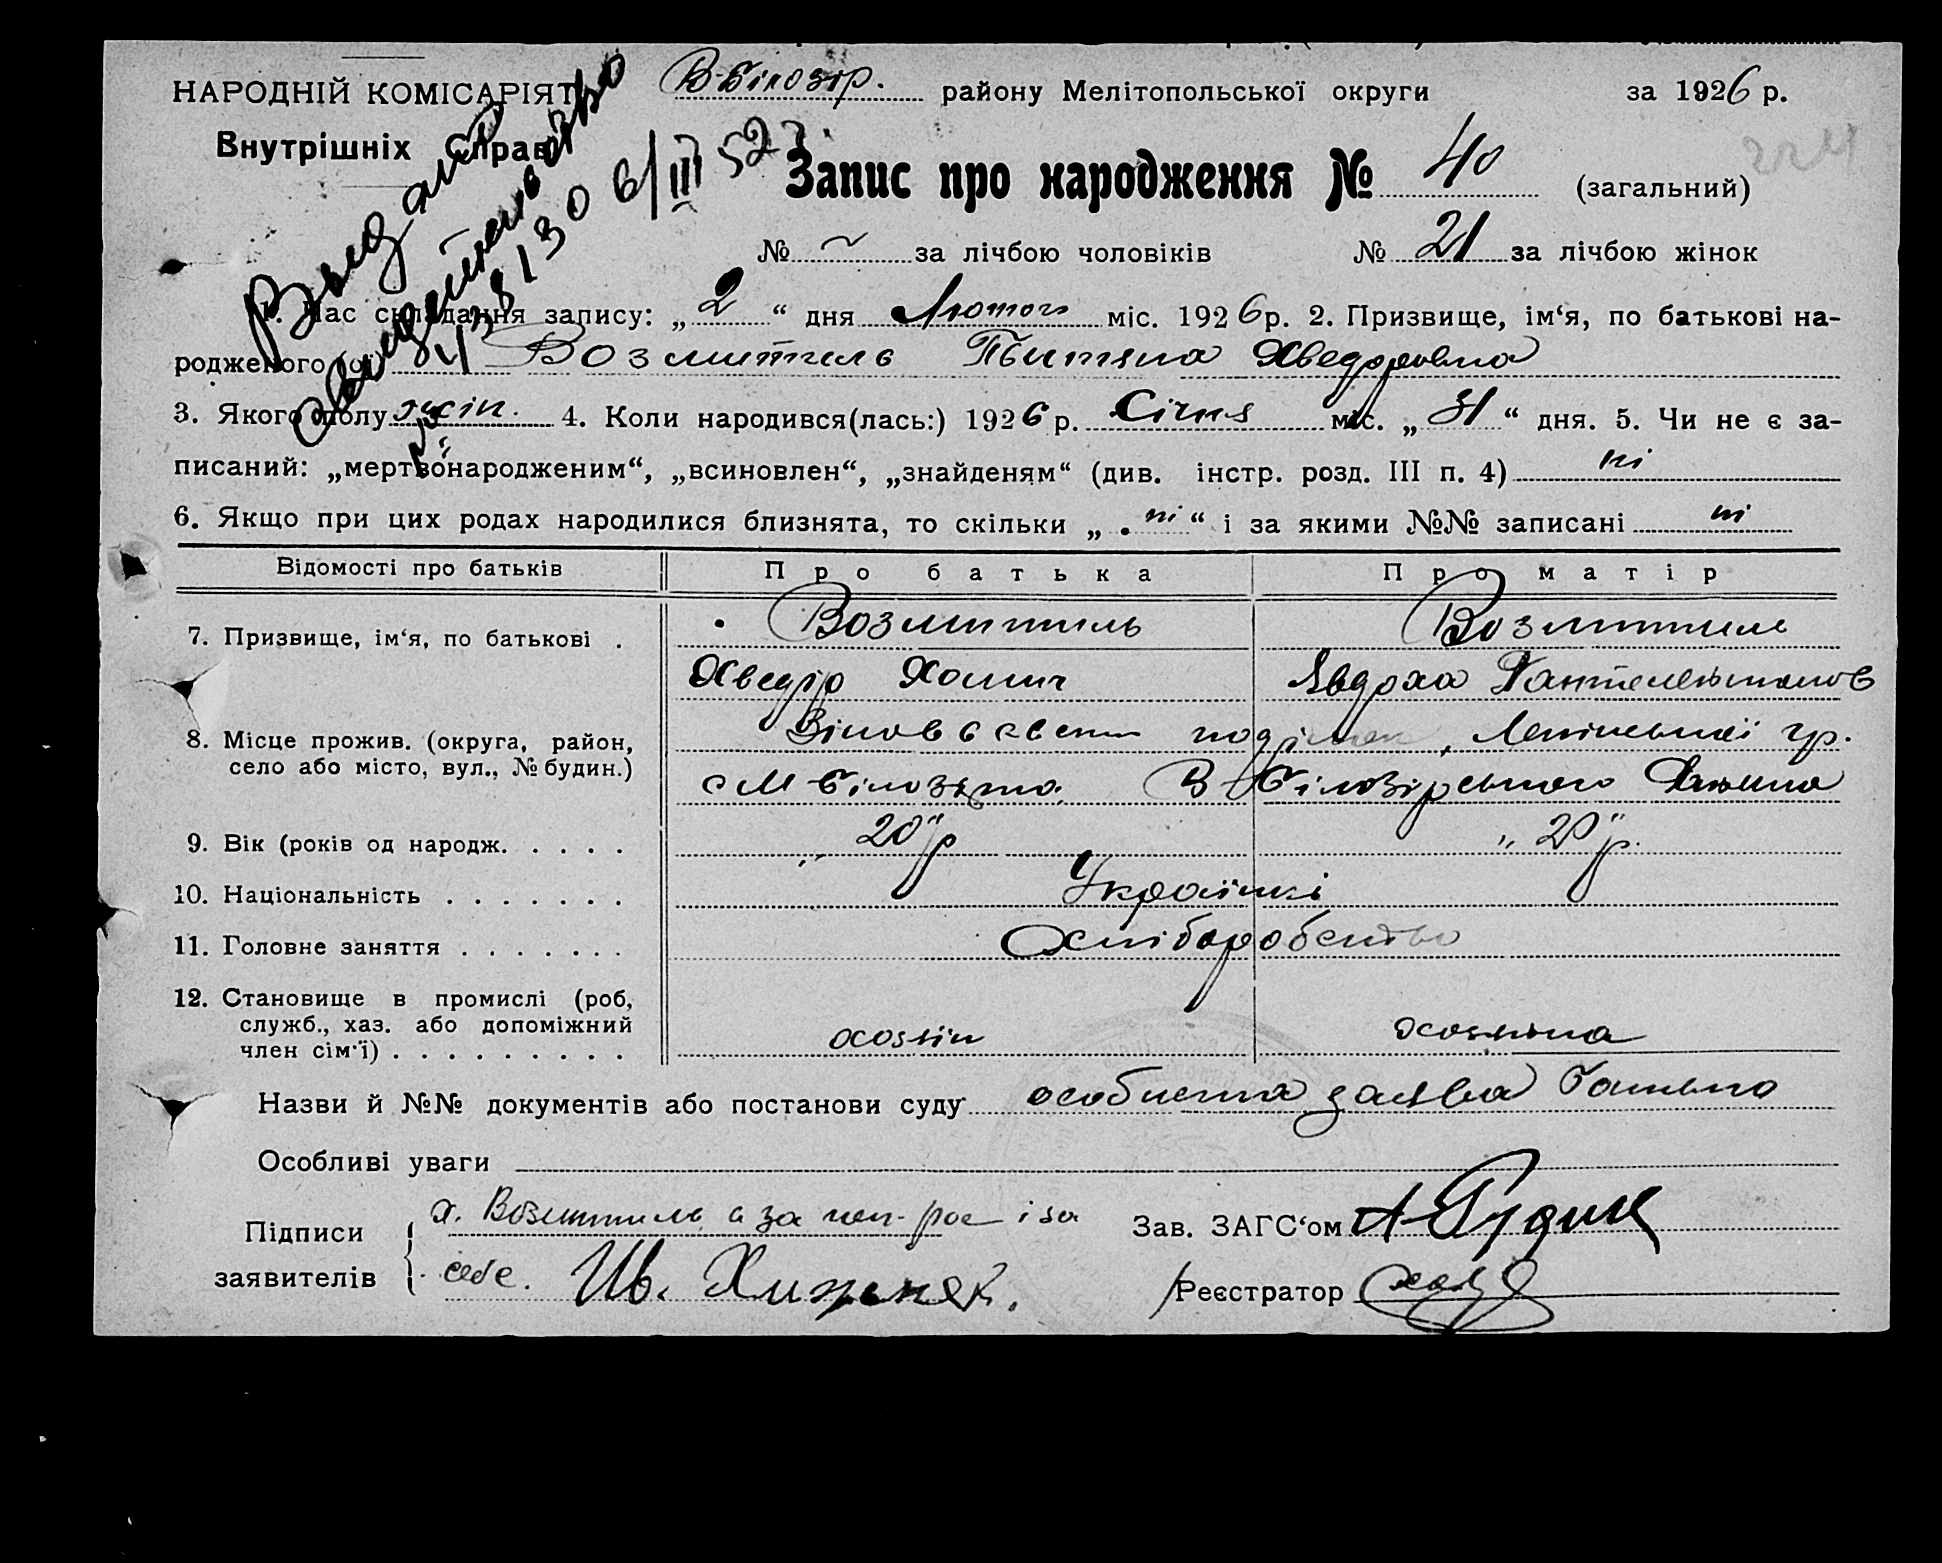 В-Білозір. району Мелітопольської округи за 1926 р.
НАРОДНІЙ КОМІСАРІЯТ
Внутрішніх Справ
Выдано
свидетельство
6/III 52 г.
224
Запис про народження № 40 (загальний)
№ ~ за лічбою чоловіків № 21 за лічбою жінок
1. Час складання запису: „2“ дня Лютого міс. 1926 р. 2. Призвище, ім‘я, по батькові на-
родженого Возмитиль Тытяна Хведоровна
3. Якого полу жін. 4. Коли народився(лась:) 1926 р. Січня міс. „31“ дня. 5. Чи не є за-
писаний: „мертвонародженим“, „всиновлен“, „знайденям“ (див. інстр. розд. III п. 4) ні
6. Якщо при цих родах народилися близнята, то скільки „ні“ і за якими №№ записані ні
Відомості про батьків Про батька Про матір
7. Призвище, ім‘я, по батькові . Возмитиль Возмитиль
Хведір Хомич Явдоха
8. Місце прожив. (округа, район, село або місто, вул., № будин.)
М-Білозірка В-Білозірського
9. Вік (років од народж. . . . . „20“ р „20“ р.
10. Національність . . . . . . . Українкі
11. Головне заняття . . . . . . . Хліборобство
12. Становище в промислі (роб,
служб., хаз. або допоміжний
член сім‘ї) . . . . . . . . . хозяін хозяйка
Назви й №№ документів або постанови суду особиста заява батька
Особливі уваги
Підписи х. Возмитиль а за неп- рос і за Зав. ЗАГС‘ом А Рудик
заявителів себе. Ив. Хижняк. Реєстратор